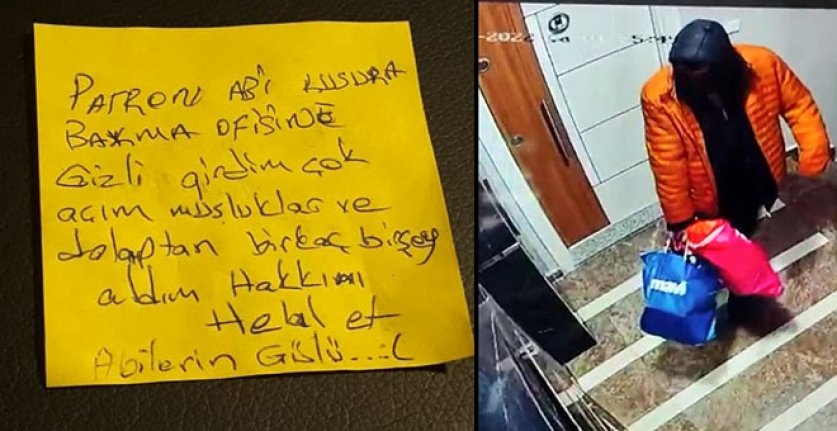 PATRON ABİ KUSURA
BAKMA OFİSİNE
Gizli girdim çok
açım musluklar ve
dolaptan birkaç birşey
aldım Hakkını
Helal et
Abilerin Gülü...:(
mavi